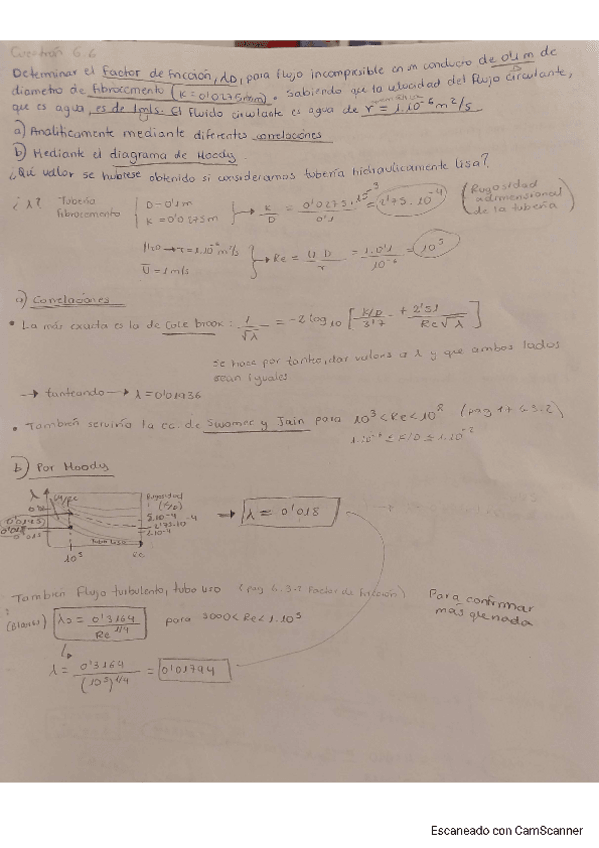 Cuestión 6.6
Determinar el factor de fricción, λD, para flujo incompresible en un conducto de 0'1 m de
diametro de fibrocemento (K = 0'0275mm). Sabiendo que la velocidad del flujo circulante,
que es agua, es de 1m/s. El fluido circulante es agua de r = 1.10-6 m2/s
a) Analíticamente mediante diferentes correlaciones
b) Mediante el diagrama de Moody
¿Qué valor se hubiese obtenido si consideramos tubería hidraulicamente lisa?
¿λ? Tubería fibrocemento D=0'1m K=0'0275m K/D = 0'0275.10-3/0'1 = 2'75.10-4 (Rugosidad adimensional de la tubería)
H2O → r = 1.10-6 m2/s
U = 1m/s
Re = U D/r = 1.0'1/10-6 = 105
a) Correlaciones
• La más exacta es la de Colebrook: 1/√λ = -2 log10 [K/D/3'7 + 2'51/Re√λ]
se hace por tanteo, dar valores a λ y que ambos lados
sean iguales
→ tanteando → λ = 0'01936
• También serviría la ec. de Swamee y Jain para 103 < Re < 108 (pag 17 6.3.2)
b) Por Moody
λ
Rugosidad
(K/D)
5.10-4
2'75.10-4
2.10-4
0'015
105
Re
→ λ = 0'018
También Flujo turbulento, tubo liso (pag 6.3.2 Factor de fricción)
Para confirmar
más que nada
(Blasius) λ0 = 0'3164/Re1/4 para 3000 < Re < 1.105
λ = 0'3164/(105)1/4 = 0'01744
Escaneado con CamScanner